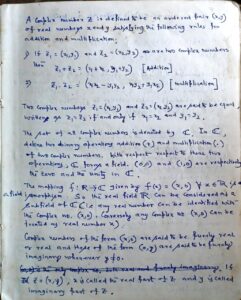 A Complex number Z is defined to be an ordered pair (x,y)
of real numbers x and y satisfying the following rules for
addition and multiplication.
i) If Z₁ = (x₁,y₁) and Z₂ = (x₂,y₂) are two complex numbers
then Z₁+Z₂ = (x₁+x₂, y₁+y₂) [Addition]
Z₁.Z₂ = (x₁x₂ - y₁y₂, x₁y₂ + x₂y₁) [multiplication]
Two complex numbers Z₁ = (x₁,y₁) and Z₂ = (x₂,y₂) are said to be equal
written as Z₁ = Z₂ if and only if x₁ = x₂ and y₁ = y₂.
The set of all complex numbers is denoted by ℂ. In ℂ,
define two binary operations addition (+) and multiplication (.)
of two complex numbers. With respect to these two
operations, ℂ forms a field. (0,0) and (1,0) are respectively
the zero and the unity in ℂ.
The mapping f: ℝ → ℂ given by f(x) = (x,0) ∀ x ∈ ℝ is
a field isomorphism. So the real field ℝ can be considered as a
subfield of ℂ (i.e any real number can be identified with
the complex no. (x,0). Conversely any complex no (x,0) can be
treated as real number x).
Complex numbers of the form (x,0) are said to be purely real
or real and those of the form (0,y) are said to be purely
imaginary whenever y≠0.
If Z = (x,y), x is called the real part of Z and y is called
imaginary part of Z,